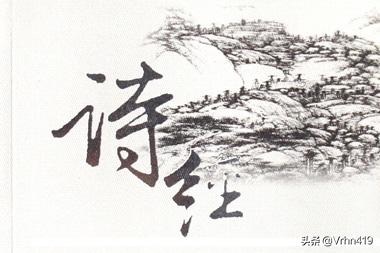 诗经
头条 @Vrhn419